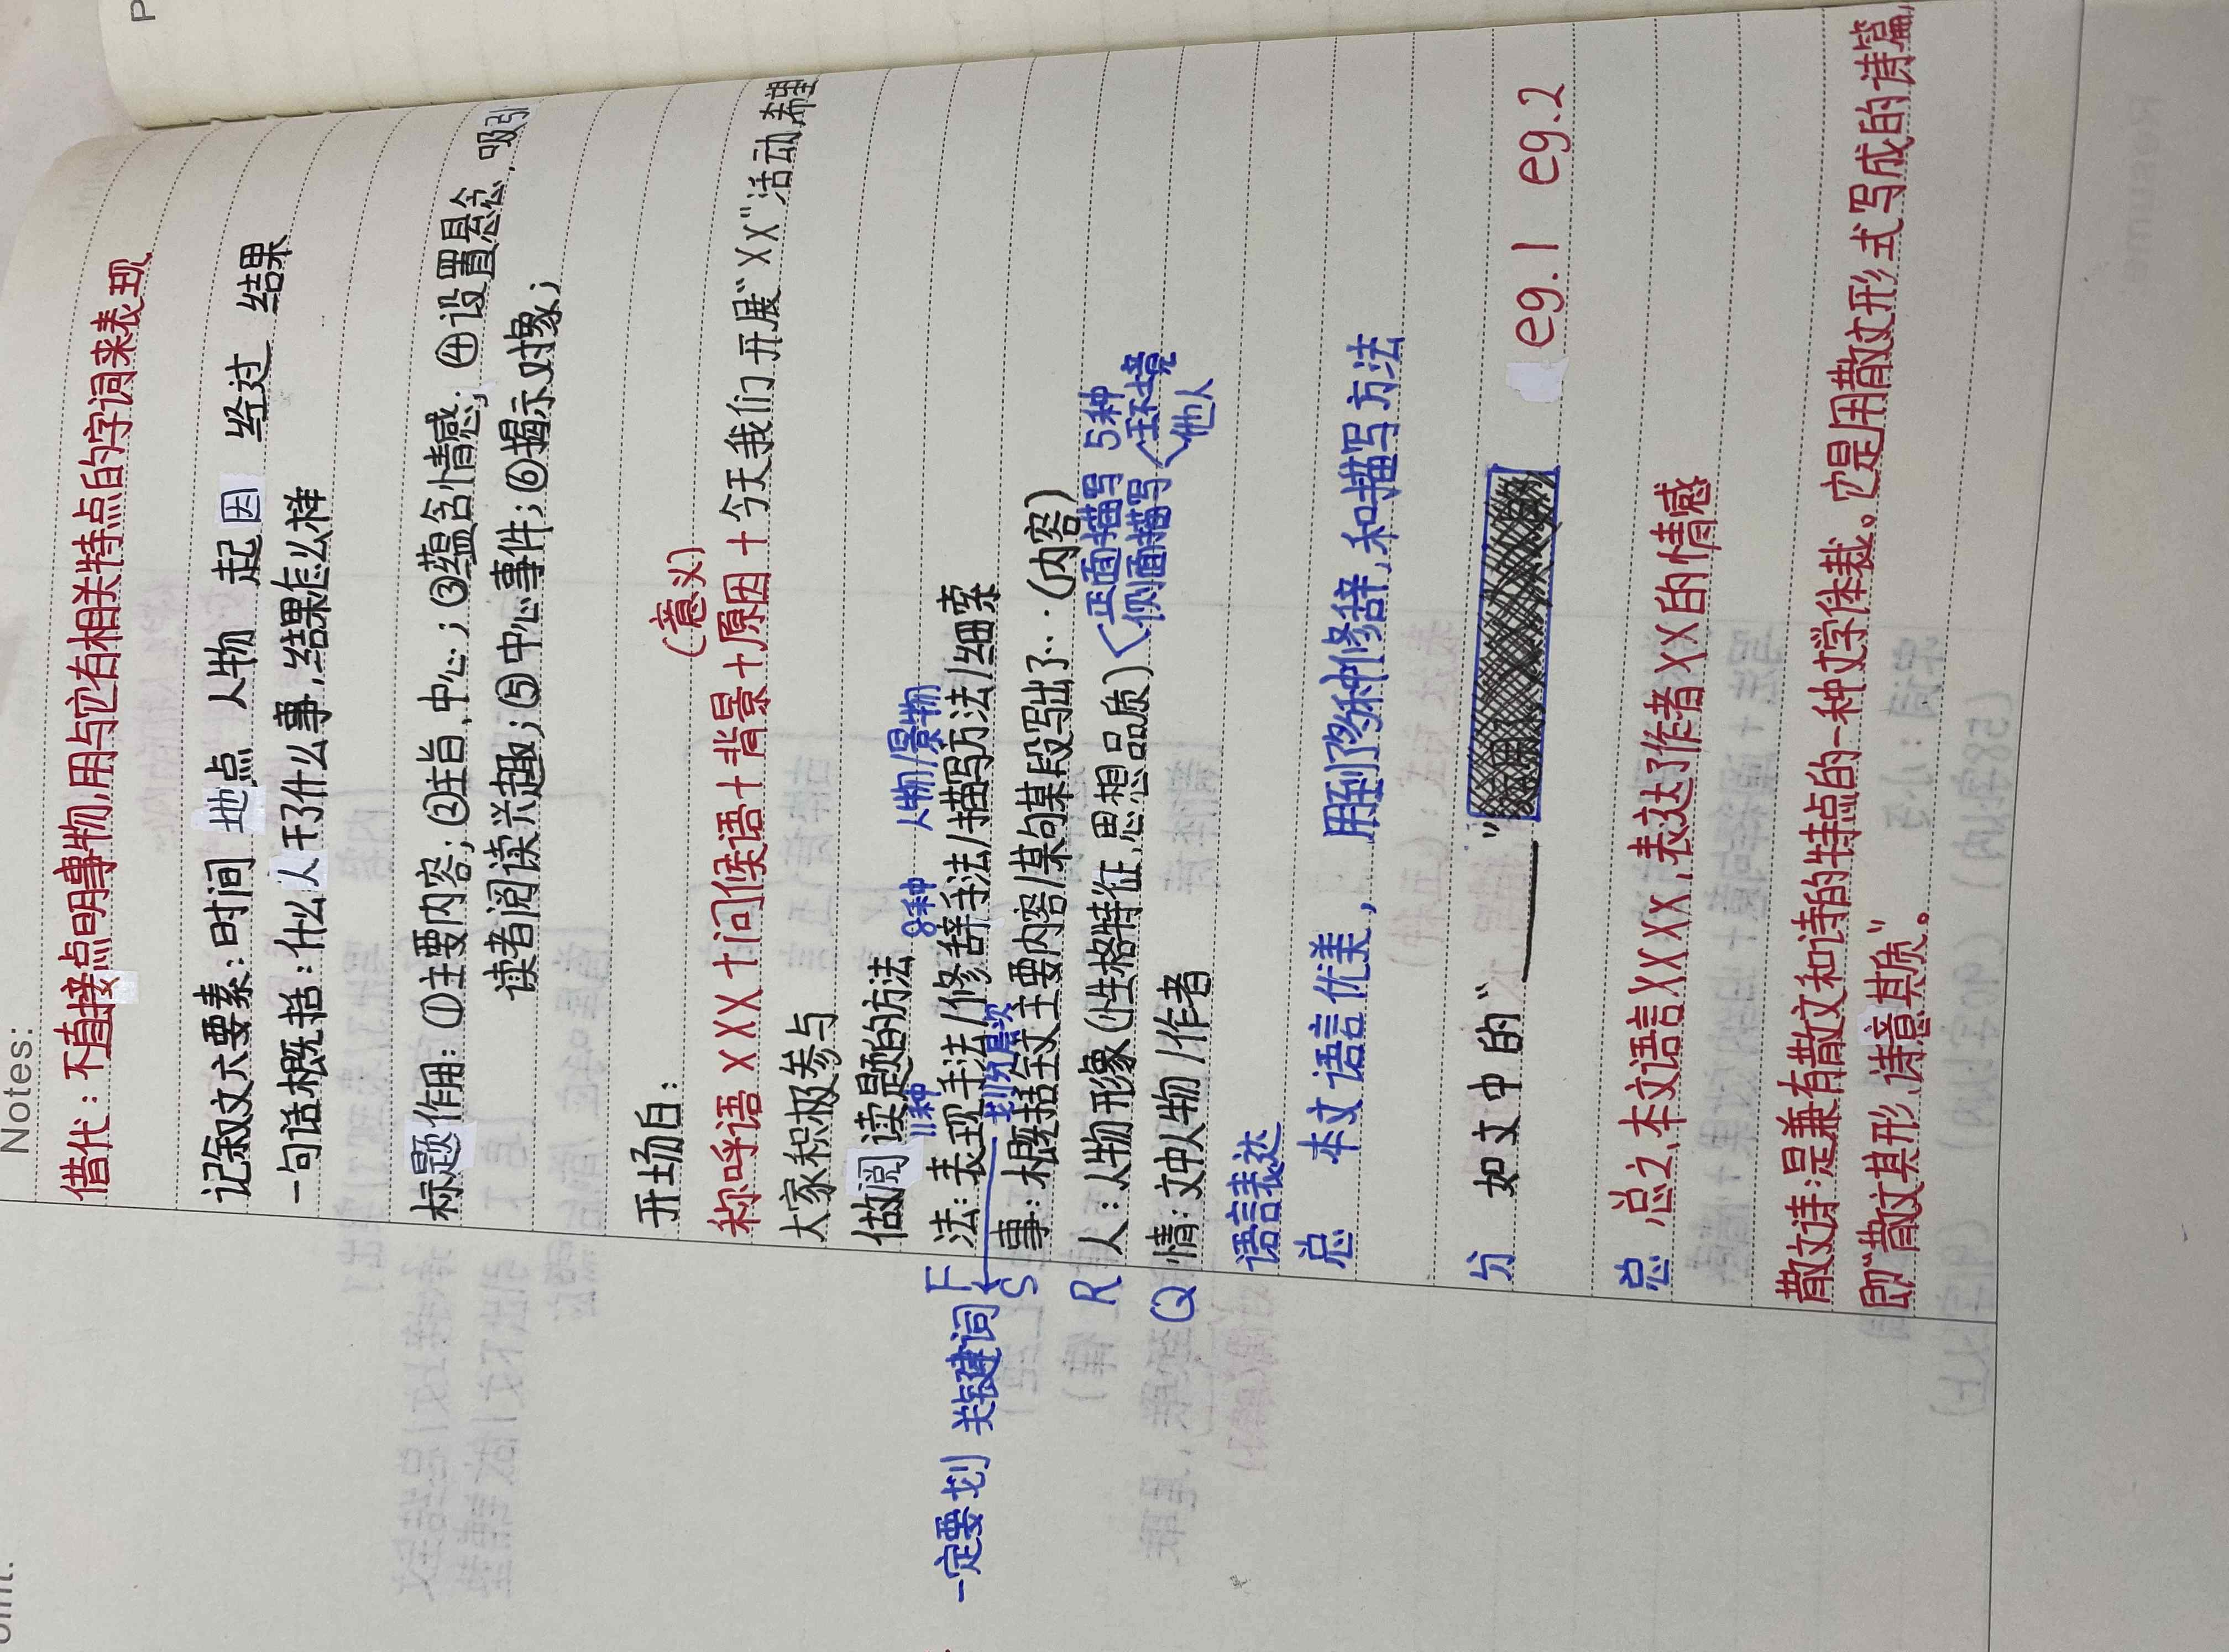 Notes:
借代：不直接点明事物,用与它有相关特点的字词来表现
记叙文六要素：时间 地点 人物 起因 经过 结果
一句话概括：什么人干了什么事,结果怎么样
标题作用：①主要内容；②主旨,中心；③蕴含情感；④设置悬念,吸引
读者阅读兴趣；⑤中心事件；⑥揭示对象；
开场白：
(意义)
称呼语XXX+问候语+背景+原因+今天我们开展"XX"活动,希望
大家积极参与
做阅读题的方法
11种 8种 人物/景物
F 法：表现手法/修辞手法/描写方法/线索
一定要划 关键词 划分层次
S 事：概括全文主要内容/某句某段写出了…(内容)
R 人：人物形象(性格特征,思想品质) 正面描写 5种
侧面描写 环境
他人
Q 情：文中人物/作者
语言表达
总 本文语言优美，用到了多种修辞,和描写方法
分 如文中的"____" eg.1 eg.2
总 总之,本文语言XXXX,表达了作者XX的情感
散文诗：是兼有散文和诗的特点的一种文学体裁。它是用散文形式写成的诗篇,
即"散文其形,诗意其质"。